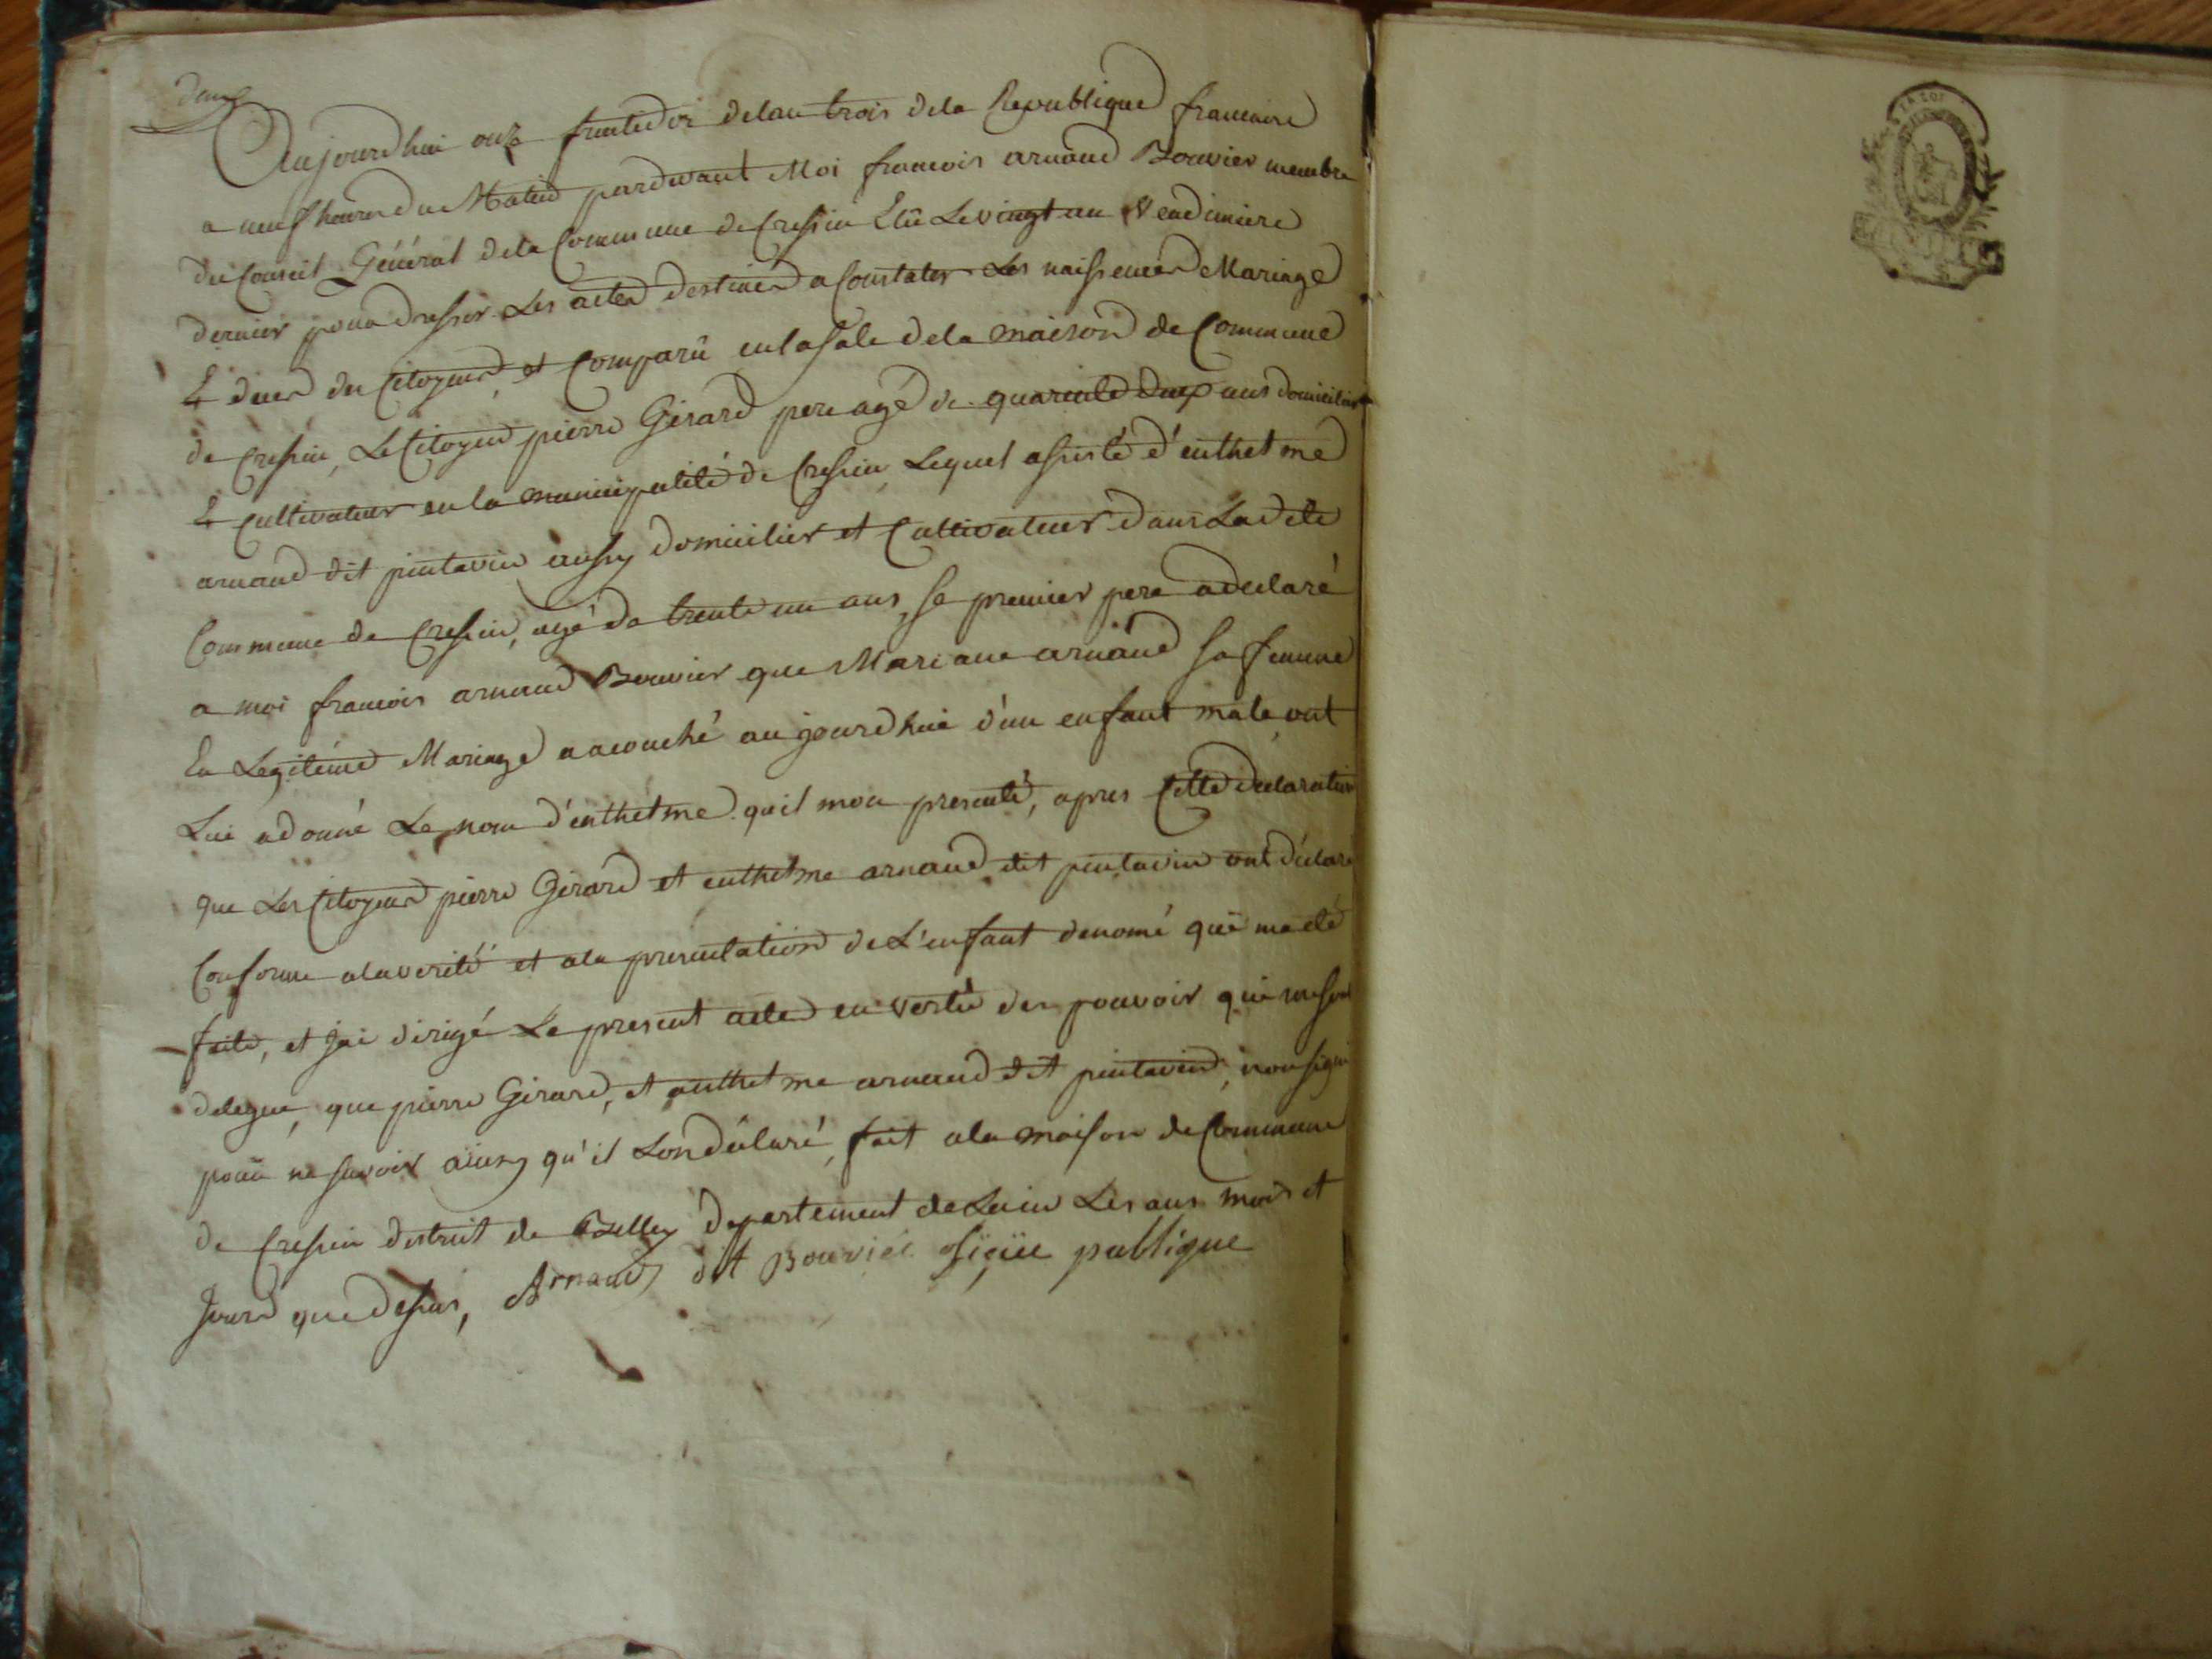 Aujourdhui onze fructidor delan trois dela Republique francaise
a neuf heures du Matin pardevant Moi francois arnaud Bouvier membre
du Conseil Général dela Commune de Cressin Elû Le vingt un Vendimiere
dernier pour dresser Les actes destinés a Constater Les naissences Mariage
& deces des Citoyens, et Comparû en la sale dela maison de Commune
de Cressin, Le Citoyen pierre Girard pere agé de quarente deux ans domicilier
& Cultivateur en la municipalité de Cressin, Lequel assisté d'enthelme
arnaud dit pintavin aussy domicilier et Cultivateur dans Ladite
Commune de Cressin, agé de trente un ans, se premier pere adeclaré
a moi francois arnaud Bouvier que Mariane arnaud sa femme
En Legitime Mariage aacouché aujourdhui d'un enfant male, ont
Lui adonné Le nom d'enthelme quil mon presenté, apres Cette declaration
que Les Citoyens pierre Girard et enthelme arnaud dit pintavin ont déclaré
Conforme alaverité et ala presentation de L'enfant denomé qui ma eté
faite, et jai dirigé Le present acte en vertû des pouvoir qui me son
delegue, que pierre Girard, et anthelme arnaud dit pintavin, non signé
pour ne savoir ainsy qu'il Londéclaré, fait ala maison de Commune
de Cressin distruit de Belley departement de Lain Les ans mois et
Jours que dessus, Arnaud dit Bouvier oficie publique
LA LOI